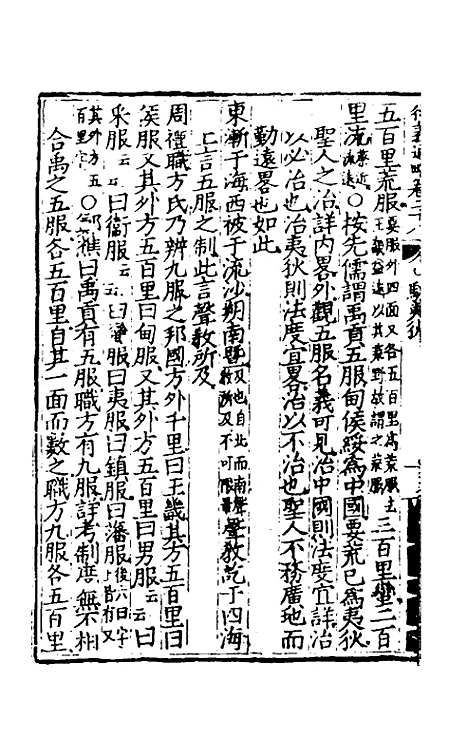 五百里荒服要服外四面又各五百里為荒服去王畿益遠以其荒野故謂之荒服三百里蠻二百
里流蠻近流遠〇按先儒謂禹貢五服甸侯綏為中國要荒已為夷狄
聖人之治詳內畧外觀五服名義可見治中國則法度宜詳治
以必治也治夷狄則法度宜畧治以不治也聖人不務廣地而
勤遠畧也如此
東漸于海西被于流沙朔南曁聲教訖于四海
上言五服之制此言聲教所及
周禮職方氏乃辨九服之邦國方外千里曰王畿其方五百里曰
侯服又其外方五百里曰甸服又其外方五百里曰男服云云曰
采服云云曰衛服云云曰蠻服曰夷服曰鎮服曰藩服
其外方五百里〇鄭樵曰禹貢有五服職方有九服詳考制度無不相
合禹之五服各五百里自其一面而數之職方九服各五百里